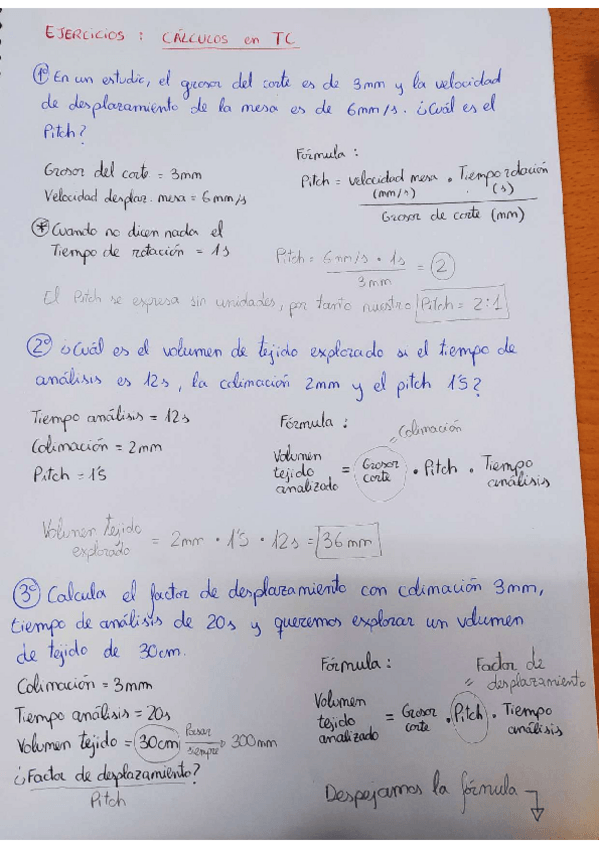 EJERCICIOS : CÁLCULOS en TC
1º En un estudio, el grosor del corte es de 3mm y la velocidad
de desplazamiento de la mesa es de 6mm/s. ¿Cuál es el
Pitch?
Grosor del corte = 3mm
Velocidad desplaz. mesa = 6mm/s
* Cuando no dicen nada el
Tiempo de rotación = 1s
Fórmula :
Pitch = velocidad mesa . Tiempo rotación
(mm/s) (s)
Grosor de corte (mm)
Pitch = 6mm/s · 1s = 2
3mm
El Pitch se expresa sin unidades, por tanto nuestro Pitch = 2:1
2º ¿Cuál es el volumen de tejido explorado si el tiempo de
análisis es 12s, la colimación 2mm y el pitch 1'5?
Tiempo análisis = 12s
Colimación = 2mm
Pitch = 1'5
Fórmula :
= Colimación
Volumen
tejido = Grosor corte . Pitch . Tiempo análisis
analizado
Volumen tejido
explorado = 2mm · 1'5 · 12s = 36mm
3º Calcula el factor de desplazamiento con colimación 3mm,
tiempo de análisis de 20s y queremos explorar un volumen
de tejido de 30cm.
Colimación = 3mm
Tiempo análisis = 20s
Volumen tejido = 30cm Pasar siempre 300mm
¿Factor de desplazamiento?
Pitch
Fórmula :
Factor de
= desplazamiento
Volumen
tejido = Grosor corte . Pitch . Tiempo análisis
analizado
Despejamos la fórmula